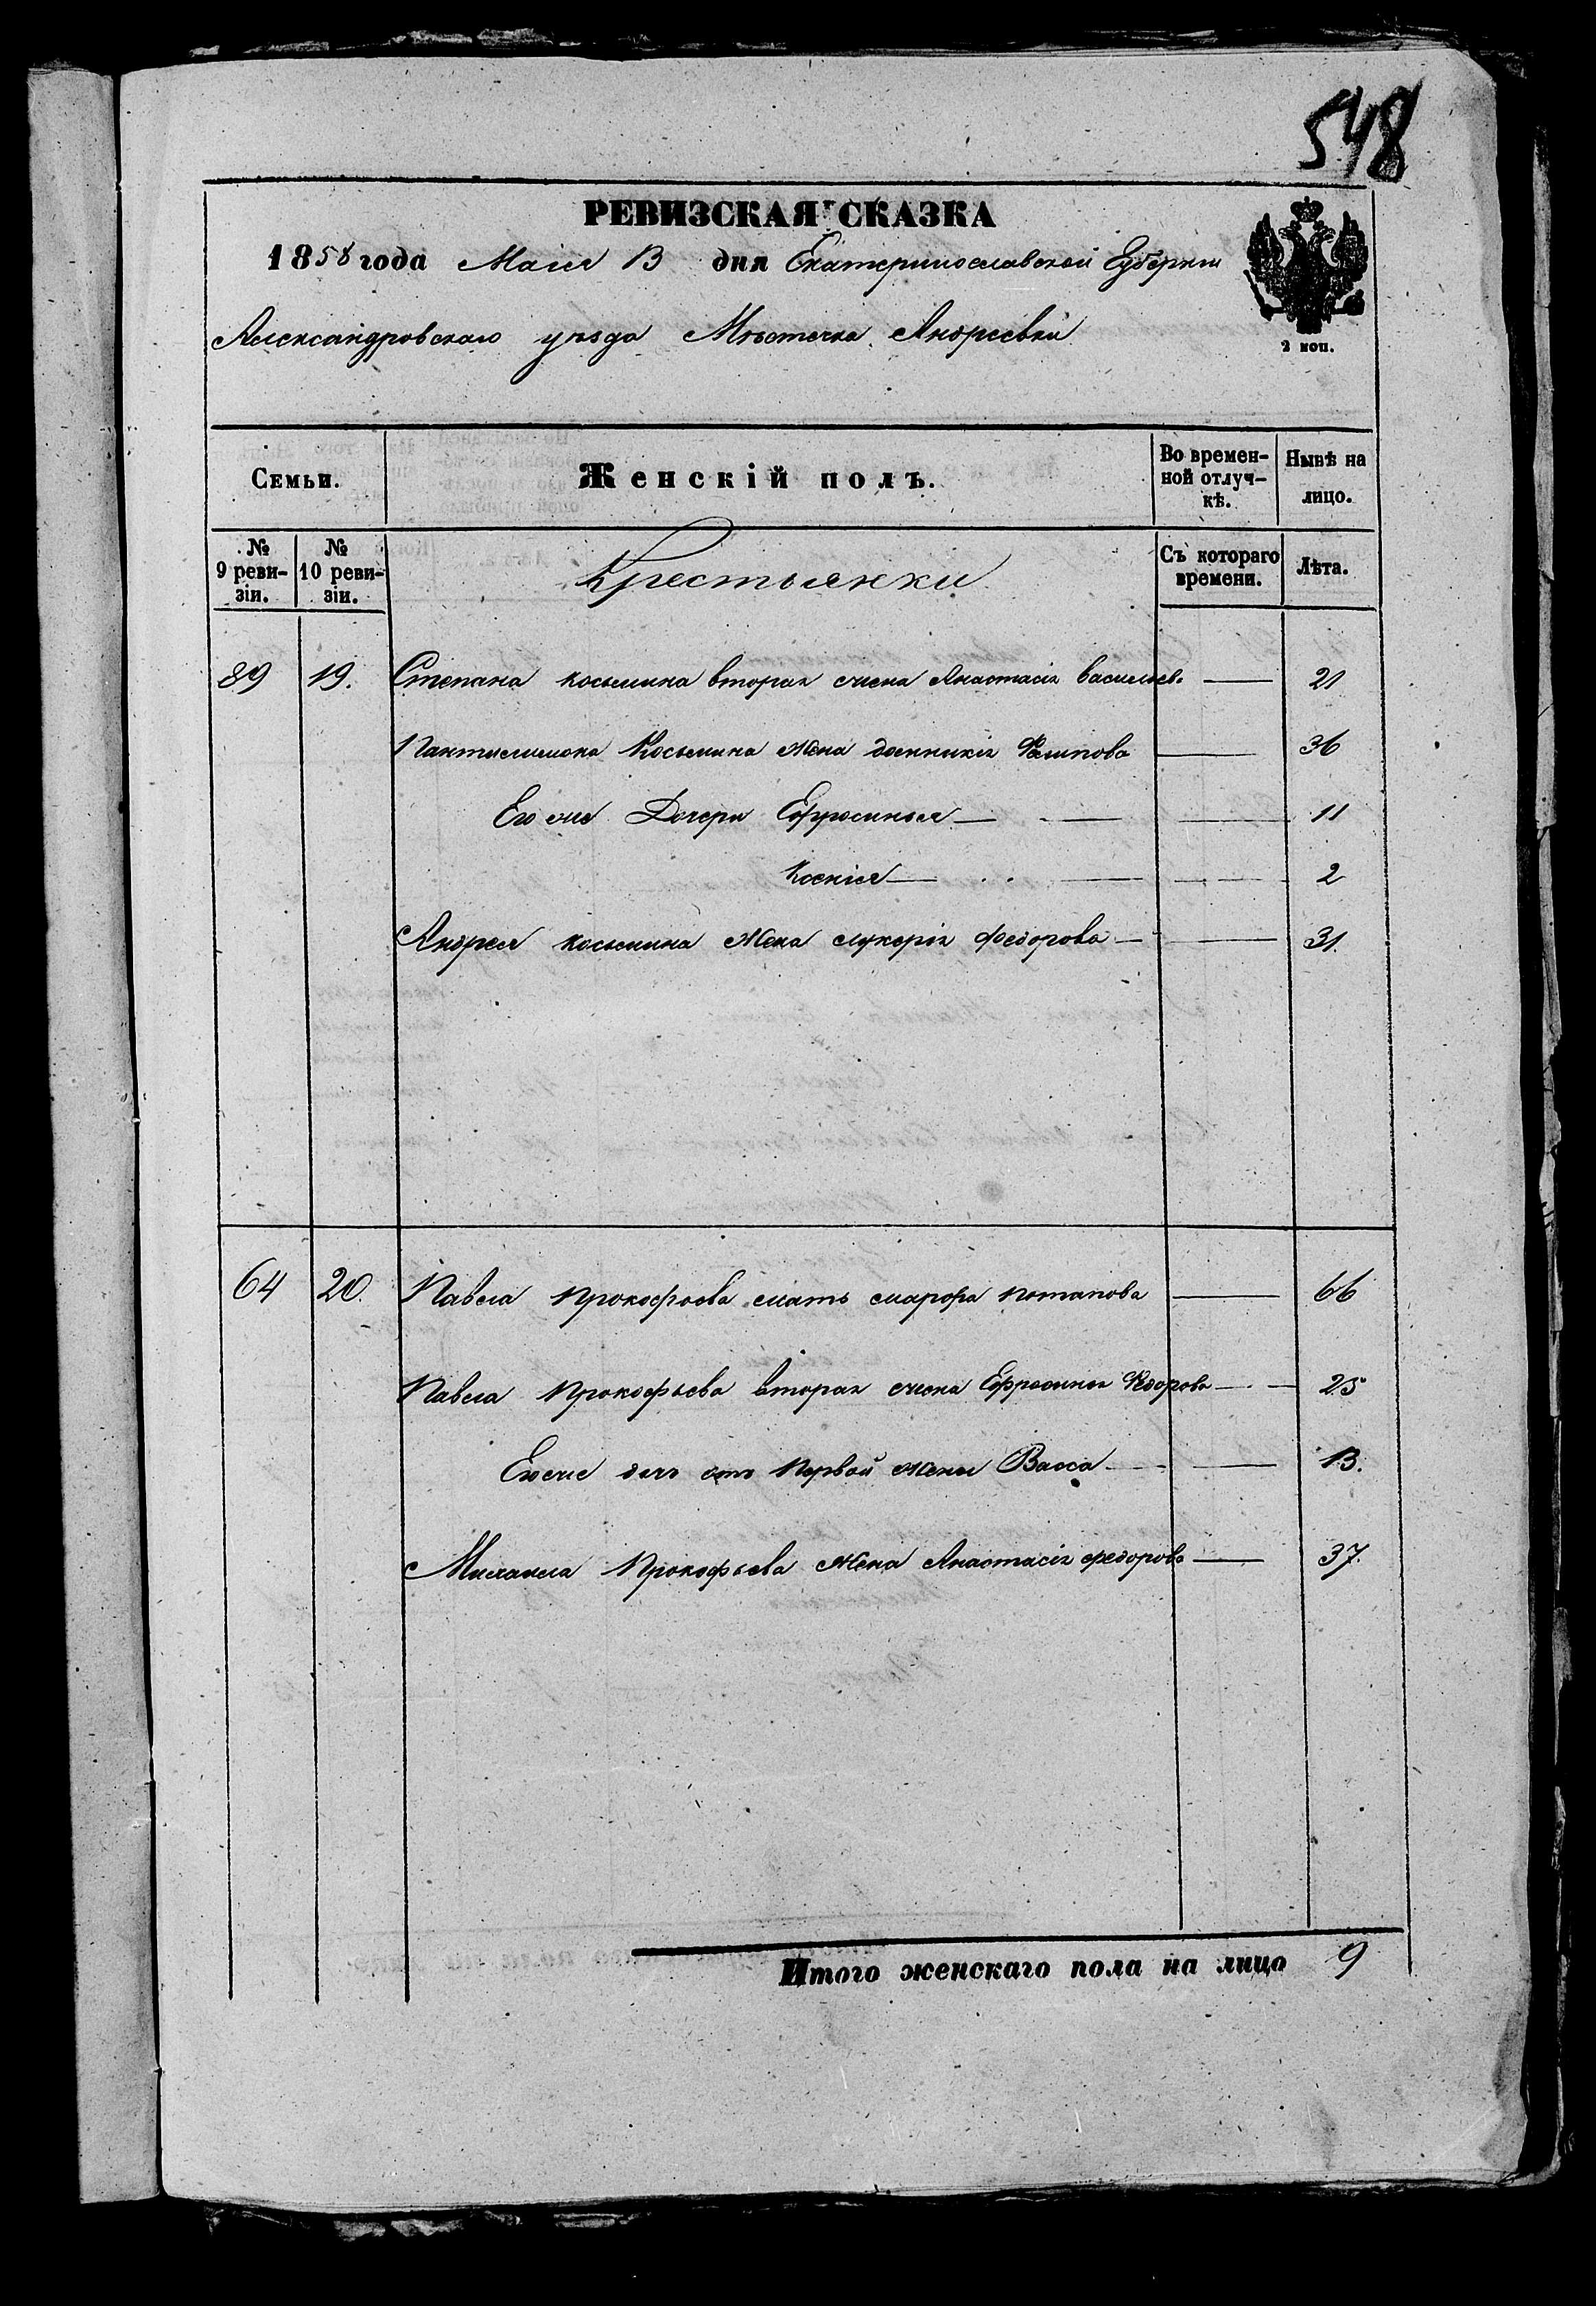 548
РЕВИЗСКАЯ СКАЗКА
1858 года Маія 13 дня Екатеринославской Губерніи
Александровскаго уѣзда Мѣстечка Андреевки
2 коп.
Семьи. Женскій полъ. Во времен-ной отлуч-кѣ. Нынѣ на лицо.
№ 9 реви-зіи. № 10 реви-зіи. Крестьянки Съ котораго времени. Лѣта.
89 19. Степана Косьмина вторая жена Анастасія васильев. — 21
Пантилимона Косьмина жена Филипова — 36
Его же Дочери Ефросинья — 11
Ксенія — 2
Андрея косьмина жена лукерія федорова — 31.
64 20. Павла Прокофьева мать марфа потапова — 66
Павла Прокофьева вторая жена Ефросинья Федорова — 25
Егоже дочь отъ Первой жены Васса — 13.
Михаила Прокофьева жена Анастасія федорова — 37.
Итого женскаго пола на лицо 9